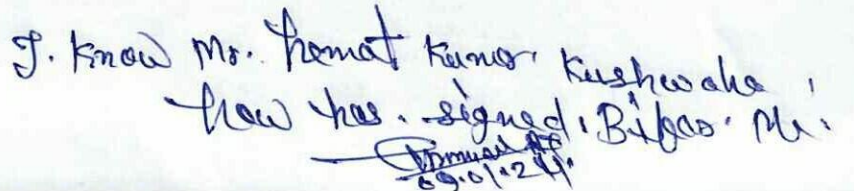 I. Know Mr. Hemat Kumar Kushwaha,
how has. signed. Bifao. Me.
09.01.24